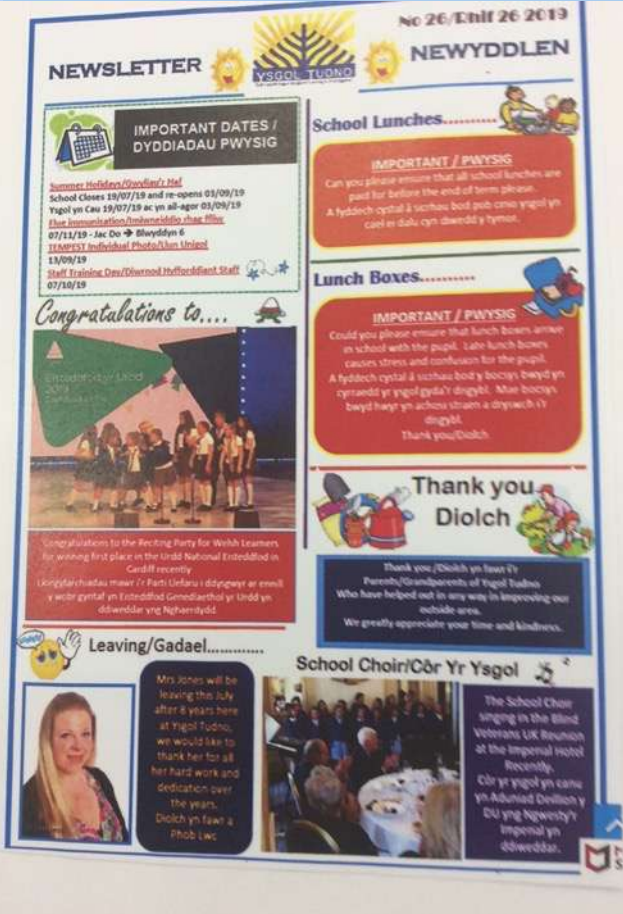 No 26/Rhif 26 2019
NEWSLETTER
YSGOL TUDNO
NEWYDDLEN
IMPORTANT DATES /
DYDDIADAU PWYSIG
Summer Holidays/Gwyliau'r Haf
School Closes 19/07/19 and re-opens 03/09/19
Ysgol yn Cau 19/07/19 ac yn ail-agor 03/09/19
Flue immunisation/Imiwneiddio rhag ffliw
07/11/19 - Jac Do → Blwyddyn 6
TEMPEST Individual Photo/Llun Unigol
13/09/19
Staff Training Day/Diwrnod Hyfforddiant Staff
07/10/19
Congratulations to....
Eisteddfod yr Urdd
2019
Congratulations to the Reciting Party for Welsh Learners
for winning first place in the Urdd National Eisteddfod in
Cardiff recently
Llongyfarchiadau mawr i'r Parti Llefaru i ddysgwyr ar ennill
y wobr gyntaf yn Eisteddfod Genedlaethol yr Urdd yn
ddiweddar yng Nghaerdydd
Leaving/Gadael.............
Mrs Jones will be
leaving this July
after 8 years here
at Ysgol Tudno,
we would like to
thank her for all
her hard work and
dedication over
the years.
Diolch yn fawr a
Phob Lwc
School Lunches..........
IMPORTANT / PWYSIG
Can you please ensure that all school lunches are
paid for before the end of term please.
A fyddech cystal â sicrhau bod pob cinio ysgol yn
cael ei dalu cyn diwedd y tymor.
Lunch Boxes..........
IMPORTANT / PWYSIG
Could you please ensure that lunch boxes arrive
in school with the pupil. Late lunch boxes
causes stress and confusion for the pupil.
A fyddech cystal â sicrhau bod y bocsys bwyd yn
cyrraedd yr ysgol gyda'r disgybl. Mae bocsys
bwyd hwyr yn achosu straen a dryswch i'r
disgybl.
Thank you/Diolch
Thank you
Diolch
Thank you /Diolch yn fawr i'r
Parents/Grandparents of Ysgol Tudno
Who have helped out in any way in improving our
outside area.
We greatly appreciate your time and kindness.
School Choir/Côr Yr Ysgol
The School Choir
singing in the Blind
Veterans UK Reunion
at the Imperial Hotel
Recently.
Côr yr ysgol yn canu
yn Aduniad Deillion y
DU yng Ngwesty'r
Imperial yn
ddiweddar.